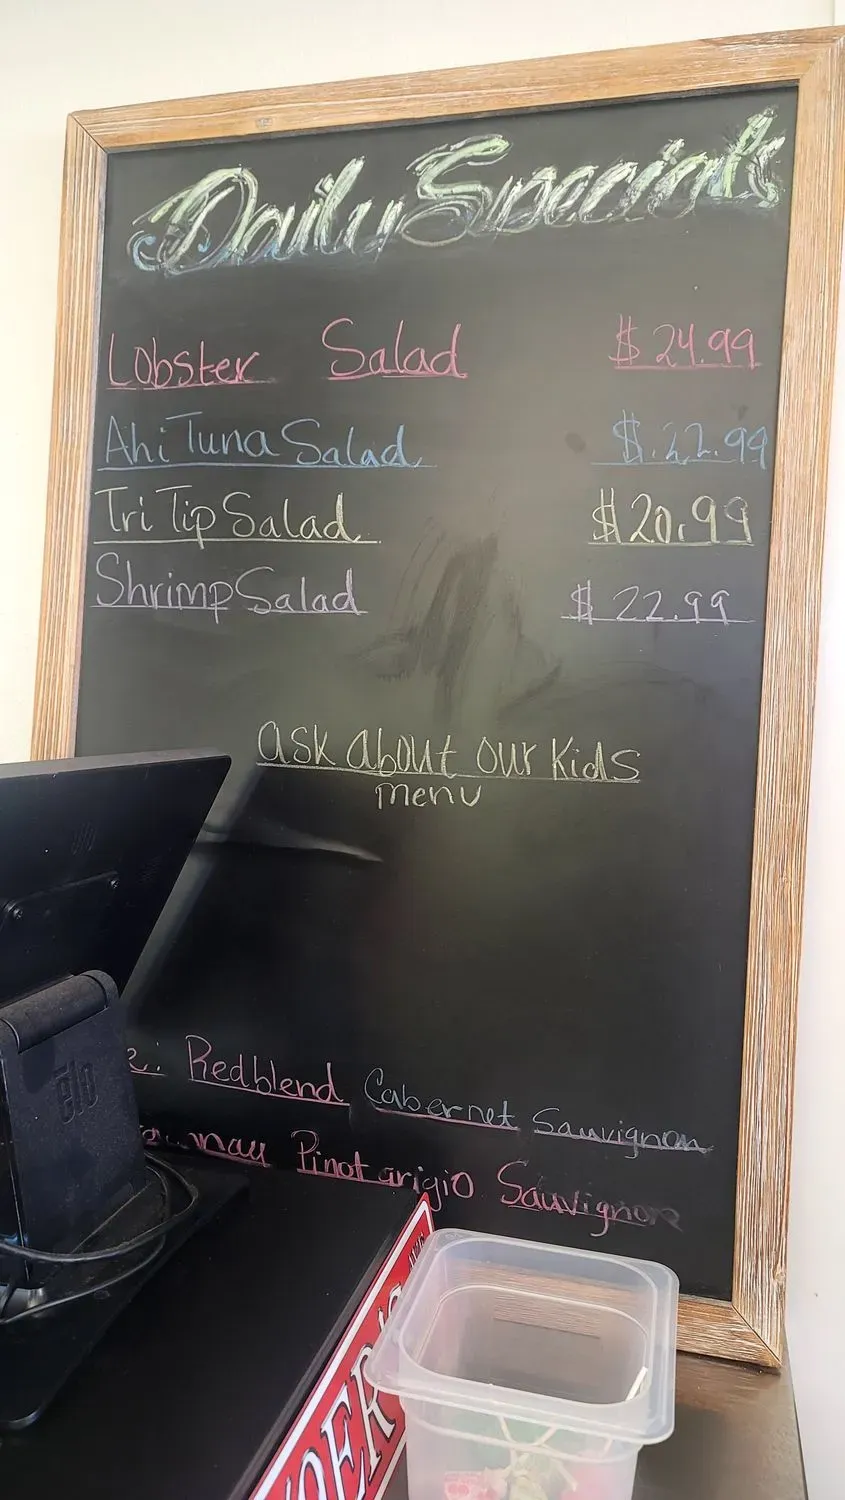 Daily Specials
Lobster Salad $24.99
Ahi Tuna Salad $.22.99
Tri Tip Salad $20.99
Shrimp Salad $ 22.99
ask about our Kids
menu
Redblend Cabernet Sauvignon
Pinot grigio Sauvignon
elo